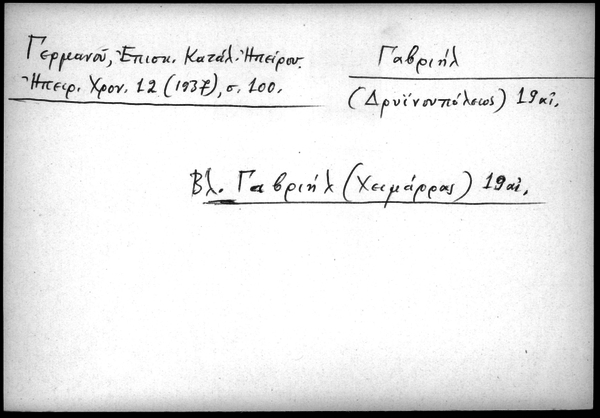 Γερμανοῦ, Ἐπισκ. Κατάλ. Ἠπείρου.
Ἠπειρ. Χρον. 12 (1937), σ. 100.
Γαβριήλ
(Δρυϊνουπόλεως) 19 αἰ.
Βλ. Γαβριήλ (Χειμάρρας) 19 αἰ.